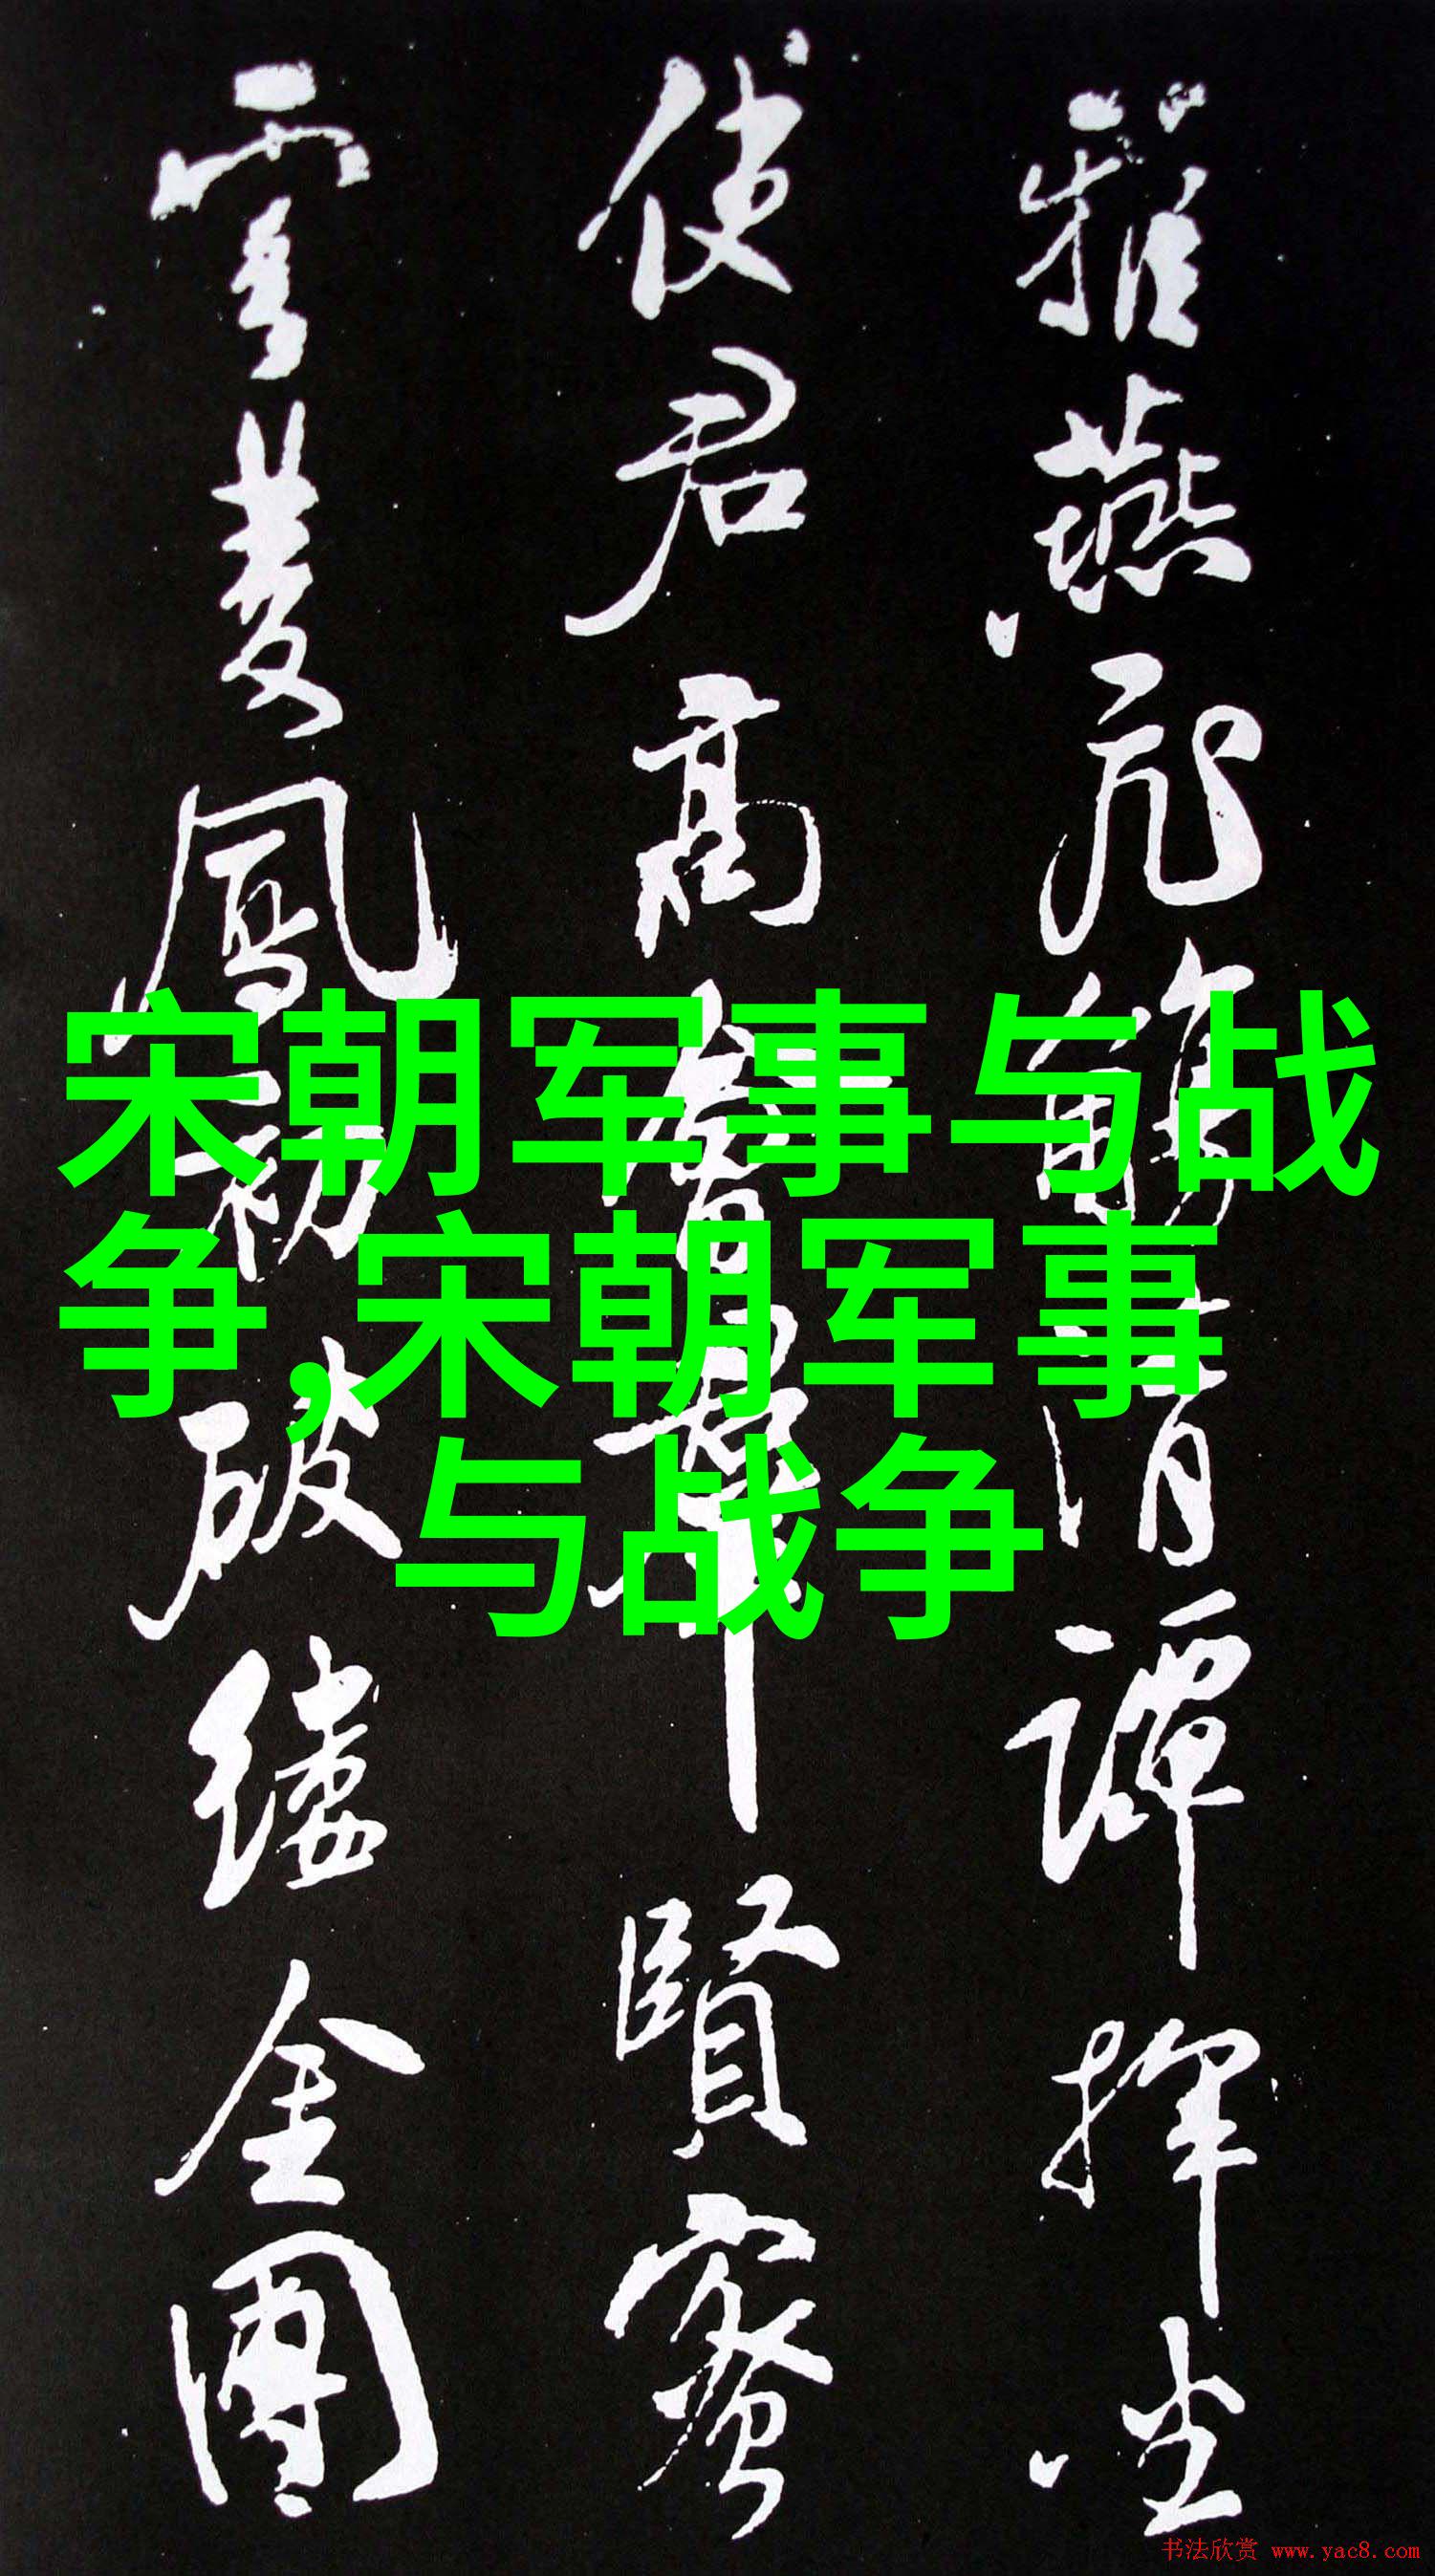 雅燕飛觴清譚揮坐
使君高會羣賢密
雲雙鳳初破縷金團
宋朝军事与战
争,宋朝军事
与战争
书法欣赏 www.yac8.com